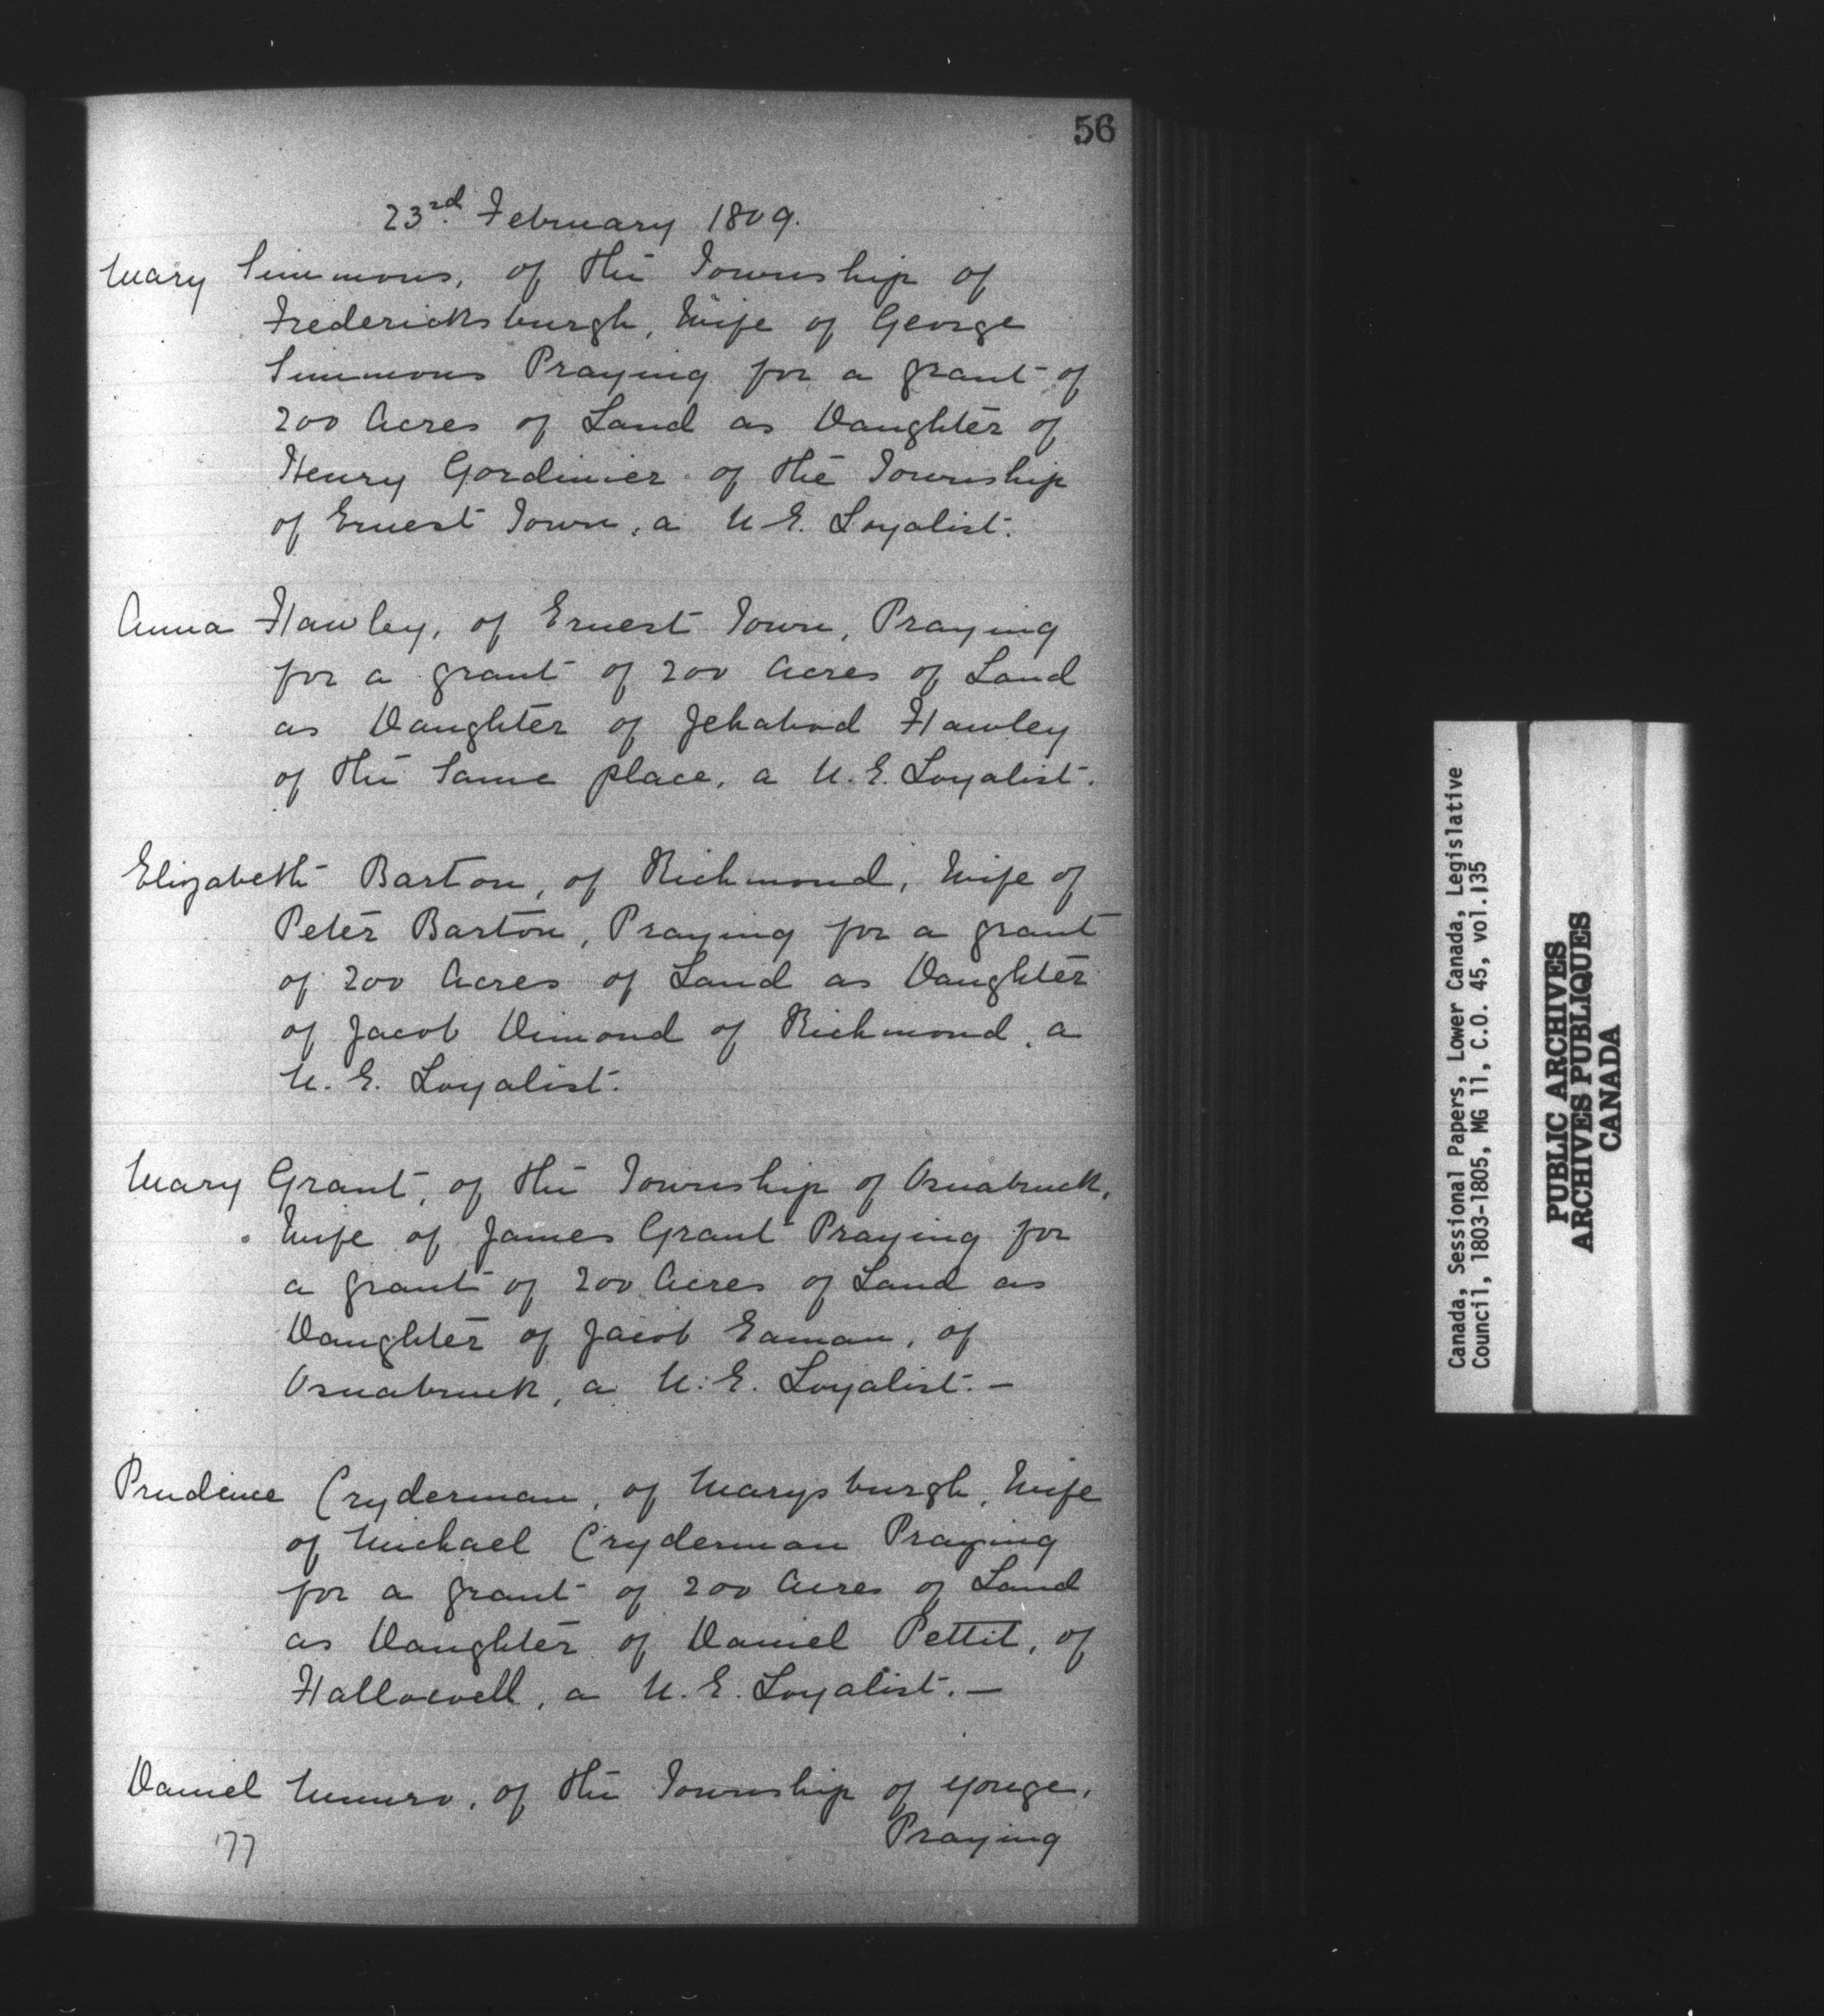 56
23rd. February 1809.
Mary Simmons, of the Township of
Fredericksburgh, Wife of George
Simmons Praying for a grant of
200 Acres of Land as Daughter of
Henry Gordinier of the Township
of Ernest Town, a U.E. Loyalist.
Anna Hawley, of Ernest Town, Praying
for a grant of 200 Acres of Land
as Daughter of Jehabod Hawley
of the Same place, a U.E. Loyalist.
Elizabeth Barton, of Richmond, Wife of
Peter Barton, Praying for a grant
of 200 Acres of Land as Daughter
of Jacob Dimond of Richmond, a
U.E. Loyalist.
Mary Grant, of the Township of Osnabruck,
Wife of James Grant Praying for
a grant of 200 Acres of Land as
Daughter of Jacob Eaman, of
Osnabruck, a U.E. Loyalist. —
Prudence Cryderman, of Marysburgh, Wife
of Michael Cryderman Praying
for a grant of 200 Acres of Land
as Daughter of Daniel Pettit, of
Hallowell, a U.E. Loyalist. —
Daniel Munro, of the Township of Yonge,
Praying
177
Canada, Sessional Papers, Lower Canada, Legislative
Council, 1803-1805, MG 11, C.O. 45, vol.135
PUBLIC ARCHIVES
ARCHIVES PUBLIQUES
CANADA